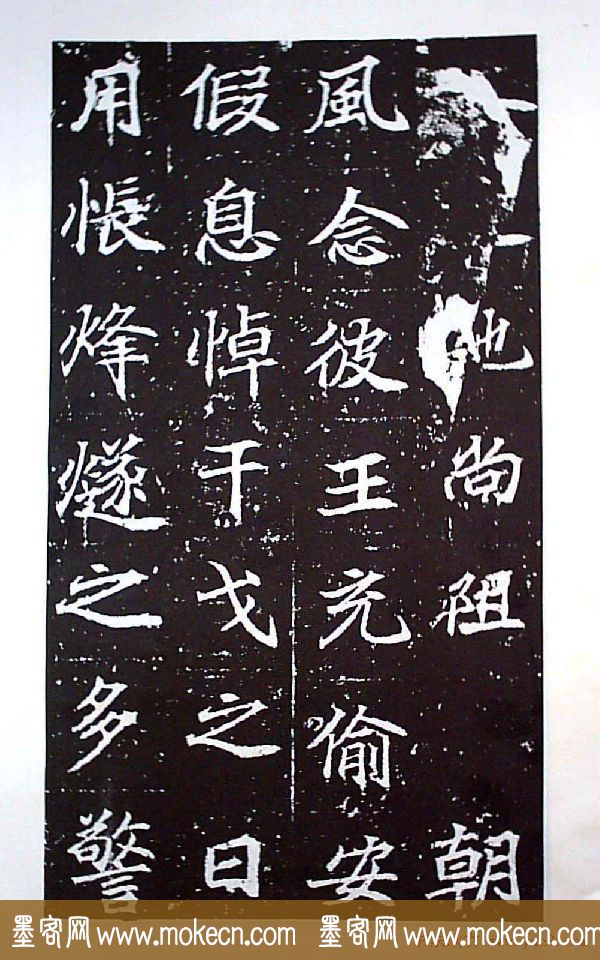 地尚阻朝
風念彼王充偷安
假息悼干戈之日
用悵烽燧之多警
墨客网 www.mokecn.com 墨客网 www.mokecn.com